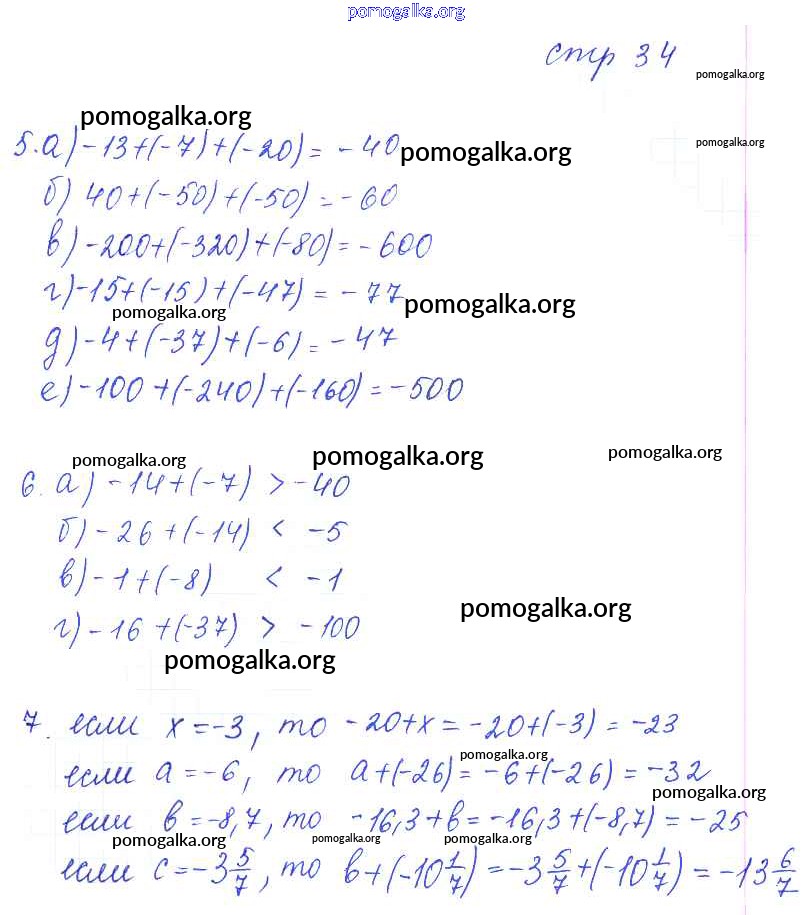 pomogalka.org
стр 34
pomogalka.org
pomogalka.org
pomogalka.org
5. а) -13+(-7)+(-20) = -40
pomogalka.org
б) 40+(-50)+(-50) = -60
в) -200+(-320)+(-80) = -600
г) -15+(-15)+(-47) = -77
pomogalka.org
pomogalka.org
д) -4+(-37)+(-6) = -47
е) -100+(-240)+(-160) = -500
pomogalka.org
pomogalka.org
pomogalka.org
6. а) -14+(-7) > -40
б) -26+(-14) < -5
в) -1+(-8) < -1
pomogalka.org
г) -16+(-37) > -100
pomogalka.org
7. если x = -3, то -20+x = -20+(-3) = -23
pomogalka.org
если a = -6, то a+(-26) = -6+(-26) = -32
pomogalka.org
если в = -8,7, то -16,3+в = -16,3+(-8,7) = -25
pomogalka.org
pomogalka.org
pomogalka.org
если c = -3 5/7, то в+(-10 1/7) = -3 5/7+(-10 1/7) = -13 6/7